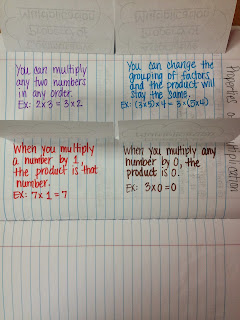 You can multiply
any two numbers
in any order.
Ex: 2x3 = 3x2
You can change the
grouping of factors
and the product will
stay the same.
Ex: (3x5)x4 = 3x(5x4)
When you multiply
a number by 1,
the product is that
number.
Ex: 7x1=7
When you multiply any
number by 0, the
product is 0.
Ex: 3x0=0
Properties of Multiplication